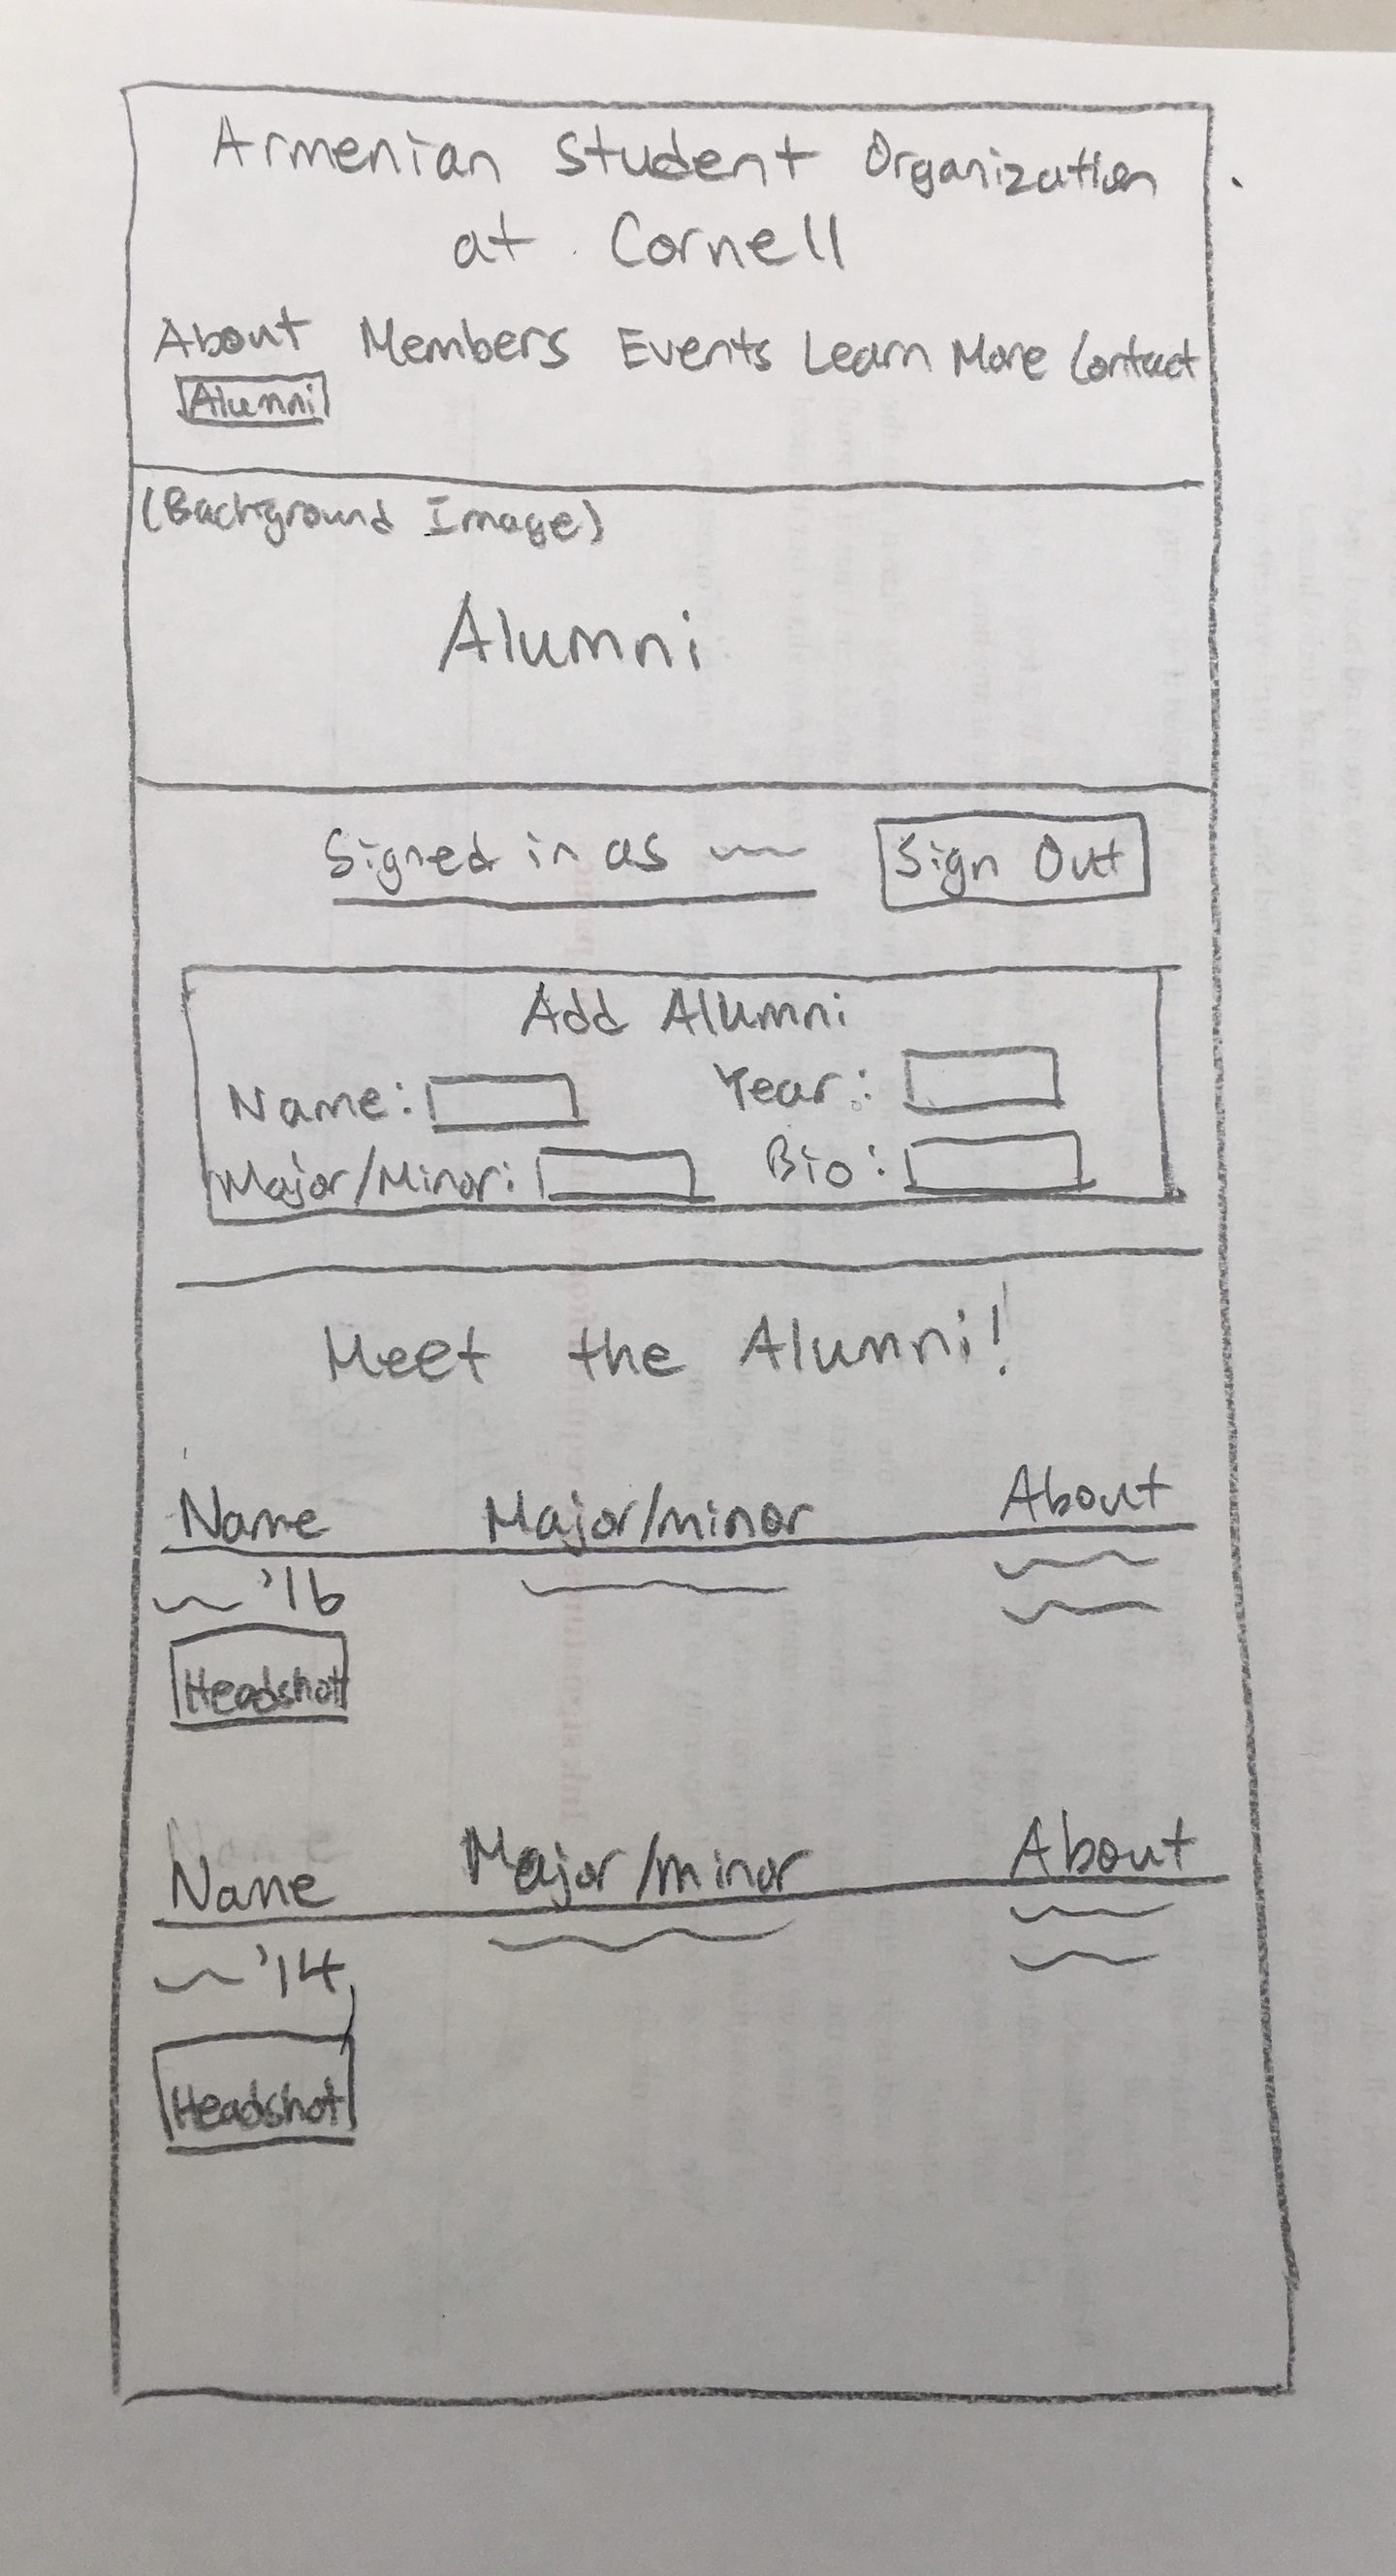 Armenian Student Organization
at Cornell
About Members Events Learn More Contact
Alumni
(Background Image)
Alumni
Signed in as Sign Out
Add Alumni
Name: Year:
Major/Minor: Bio:
Meet the Alumni!
Name Major/minor About
'16
Headshot
Name Major/minor About
'14
Headshot